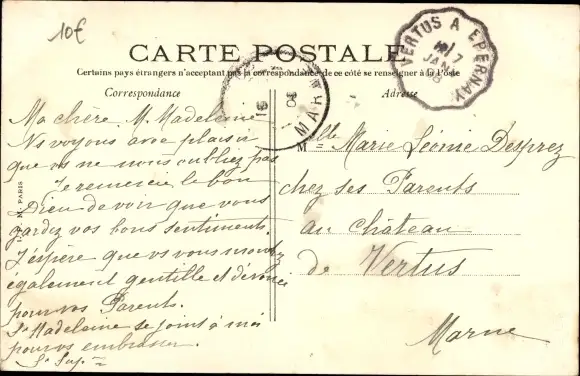 10€
CARTE POSTALE
Certains pays étrangers n'acceptant pas la correspondance de ce côté se renseigner à la Poste
Correspondance
Adresse
VERTUS A EPERNAY
7
JANV
08
MAR
Ma chère M. Madeleine
Ns voyons avec plaisir
que vs ne nous oubliez pas
Je remercie le bon
Dieu de voir que vous
gardez vos bons sentiments.
J'espère que vs vous montrez
également gentille et dévouée
pour vos Parents.
Sr Madeleine se joint à moi
pour vs embrasser
Sr Sup.
Mlle Marie Léonie Desprez
chez ses Parents
au château
de Vertus
Marne
PARIS